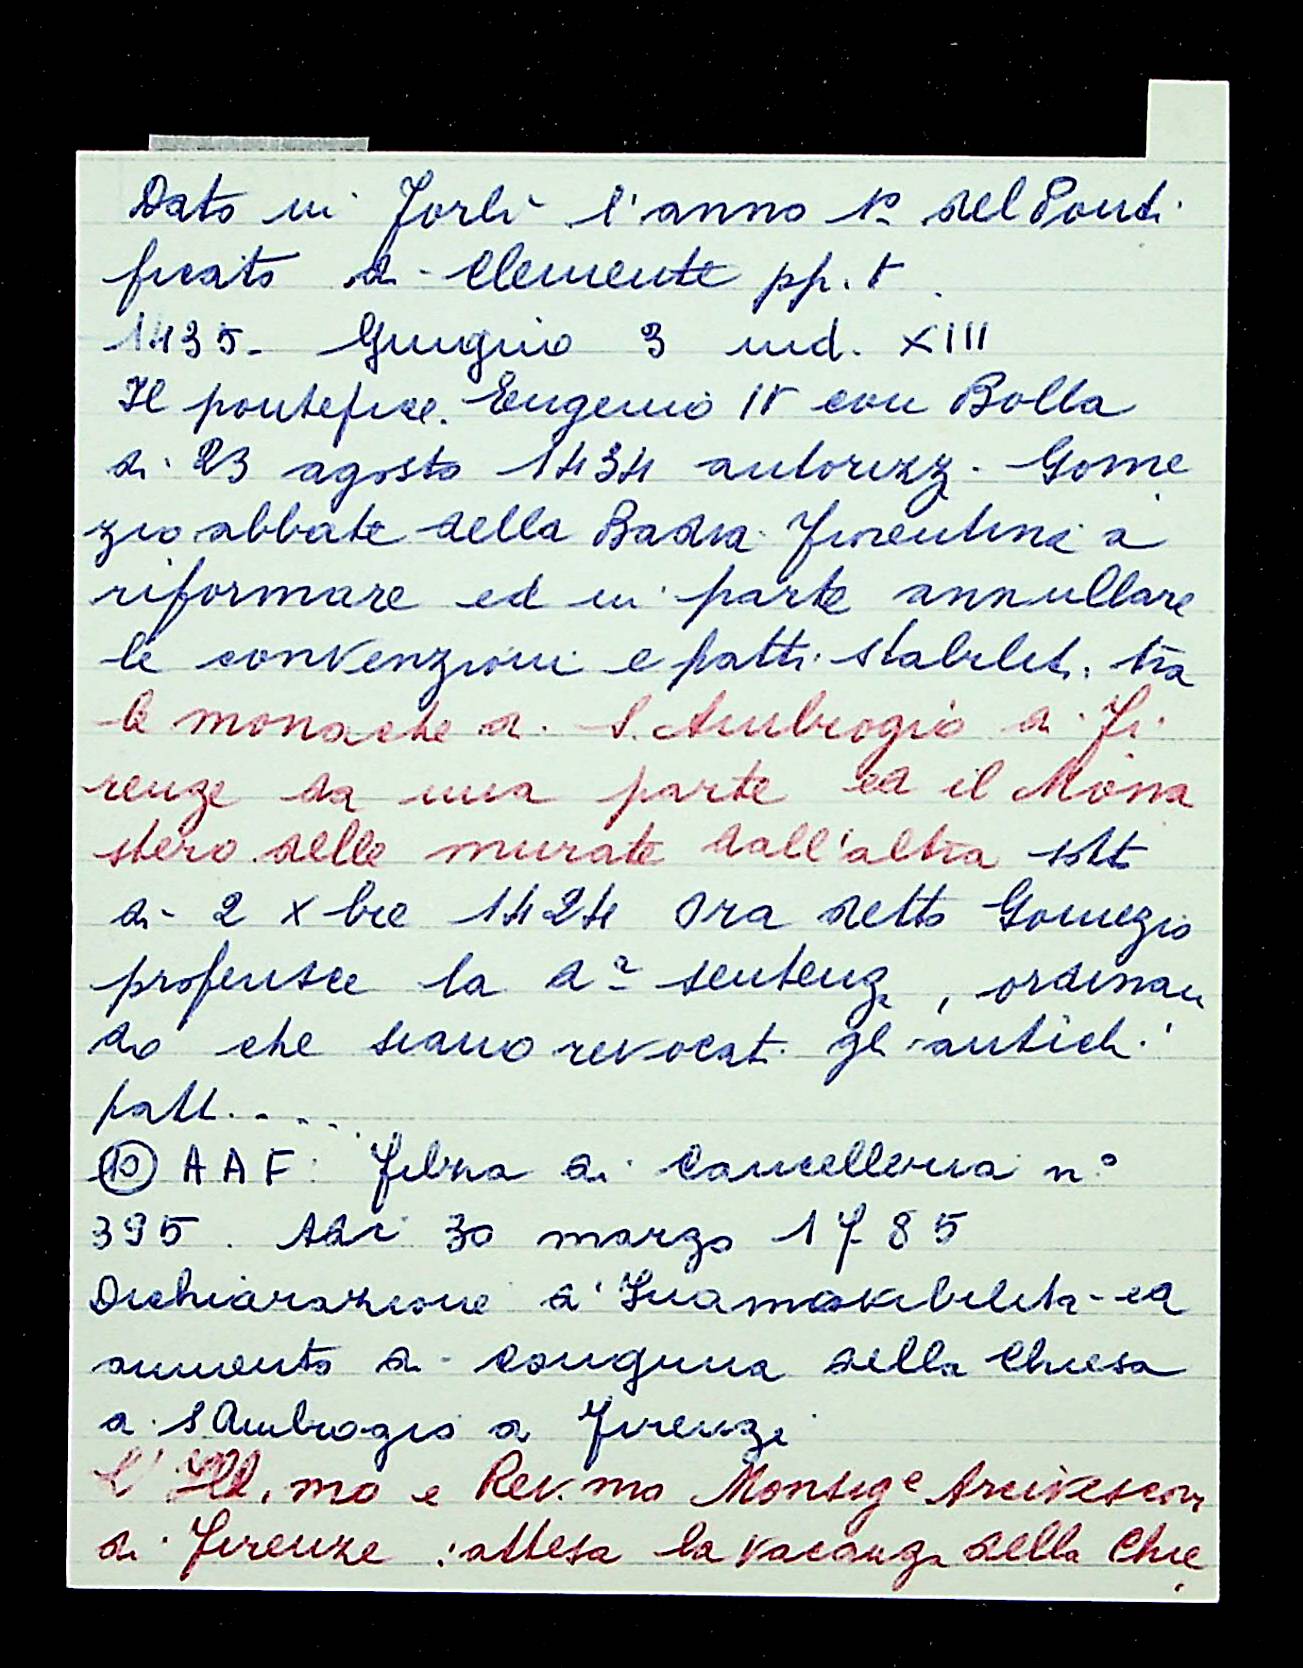 Dato in Forlì l'anno 1º del Ponti
ficato di Clemente pp. V.
1435. Giugno 3 ind. XIII
Il pontefice Eugenio IV con Bolla
di 23 agosto 1434 autorizz. Gome
zio abbate della Badia Fiorentina a
riformare ed in parte annullare
le convenzioni e patti stabilit. tra
le monache di S. Ambrogio di Fi
renze da una parte ed il Mona
stero delle murate dall'altra sott
di 2 xbre 1424 Ora detto Gomezio
proferisce la dª sentenza, ordinan
do che siano revocati gli antichi
patti.....
(10) AAF: Filza di Cancelleria nº
395. Adì 30 marzo 1785
Dichiarazione d'Inamovibilità ed
aumento di congrua della Chiesa
di S Ambrogio di Firenze
L'Ill.mo e Rev.mo Monsigᵉ Arcivescov
di Firenze: attesa la vacanza della Chie